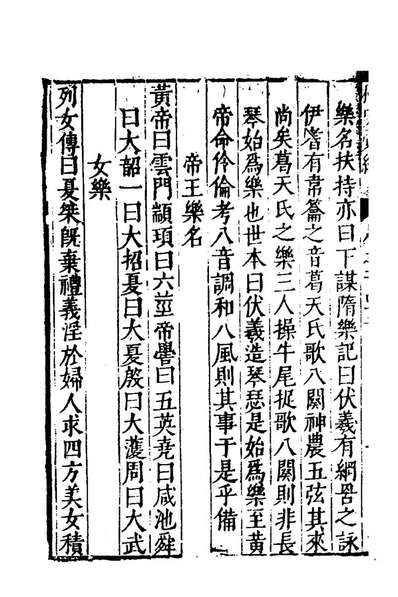 樂名扶持亦曰下謀隋樂記曰伏羲有網罟之詠
伊耆有葦籥之音葛天氏歌八闋神農五弦其來
尚矣葛天氏之樂三人操牛尾捉歌八闋則非長
琴始為樂也世本曰伏羲造琴瑟是始為樂至黃
帝命伶倫考八音調和八風則其事于是乎備
帝王樂名
黃帝曰雲門顓頊曰六莖帝嚳曰五英堯曰咸池舜
曰大韶一曰大招夏曰大夏殷曰大濩周曰大武
女樂
列女傳曰夏桀旣棄禮義淫於婦人求四方美女積